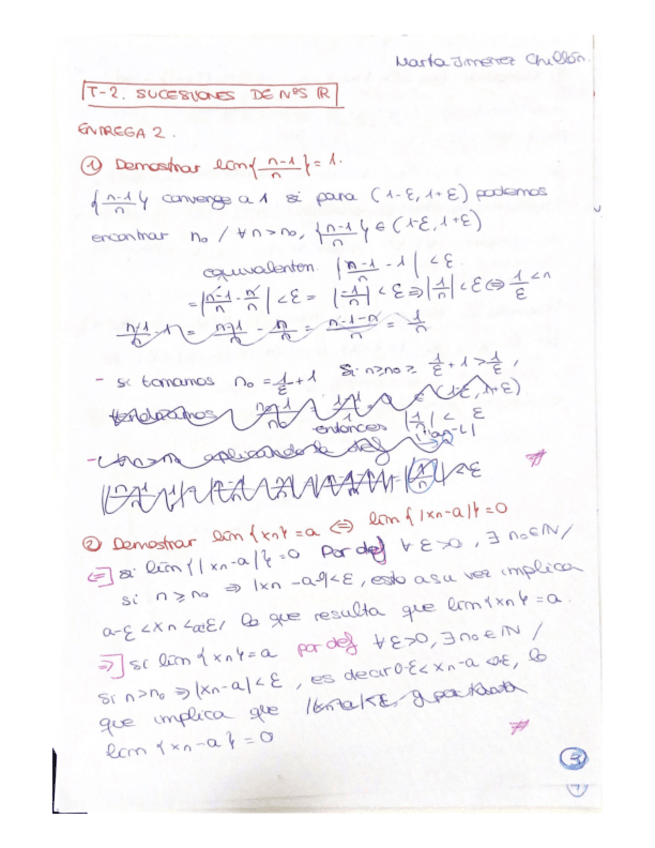 Marta Jiménez Chillón.
T-2. SUCESIONES DE NºS ℝ
ENTREGA 2.
① Demostrar lim{n-1/n} = 1.
{n-1/n} converge a 1 si para (1-ε, 1+ε) podemos
encontrar n₀ / ∀n>n₀, {n-1/n} ∈ (1-ε, 1+ε)
equivalenten. |n-1/n - 1| < ε
= |n-1/n - n/n| < ε = |-1/n| < ε ⇒ |1/n| < ε ⇔ 1/ε < n
n-1/n - 1 = n-1/n - n/n = n-1-n/n = 1/n
- si tomamos n₀ = 1/ε + 1 Si n≥n₀ ≥ 1/ε + 1 > 1/ε,
tendríamos
entonces |1/n| < ε
② Demostrar lim{xn} = a ⇔ lim{|xn-a|} = 0
⇐] si lim{|xn-a|} = 0 Por def ∀ε>0, ∃ n₀∈ℕ /
si n≥n₀ ⇒ |xn-a|<ε, esto a su vez implica
lo que resulta que lim{xn} = a.
⇒] si lim{xn} = a por def ∀ε>0, ∃n₀∈ℕ /
Si n>n₀ ⇒ |xn-a|<ε, es decir 0-ε< xn-a <ε, lo
que implica que
lim{xn-a} = 0
3